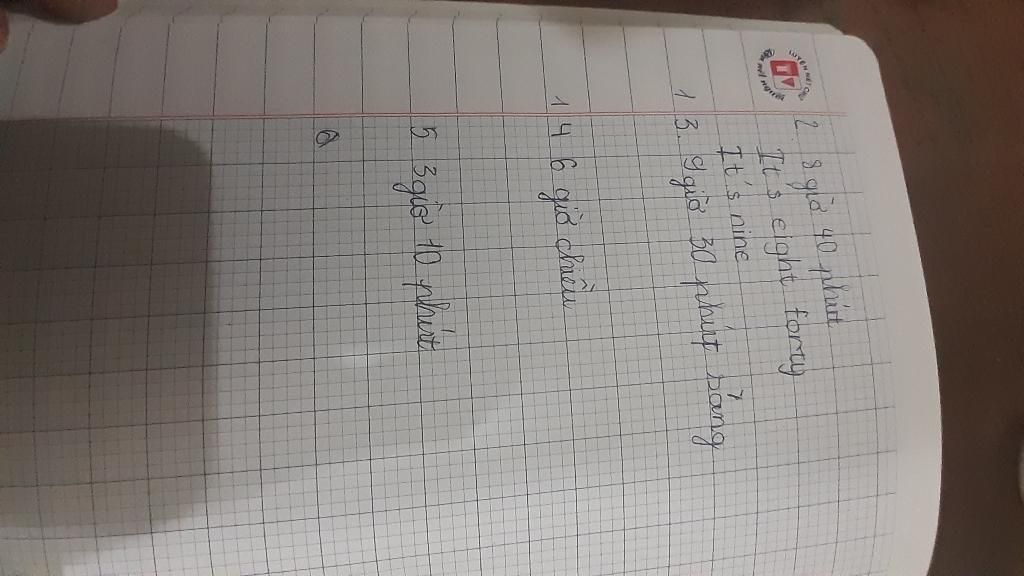 2. 8 giờ 40 phút
It's eight forty
It's nine
1 3. 9 giờ 30 phút sáng
1 4 6 giờ chiều
5. 3 giờ 10 phút
6